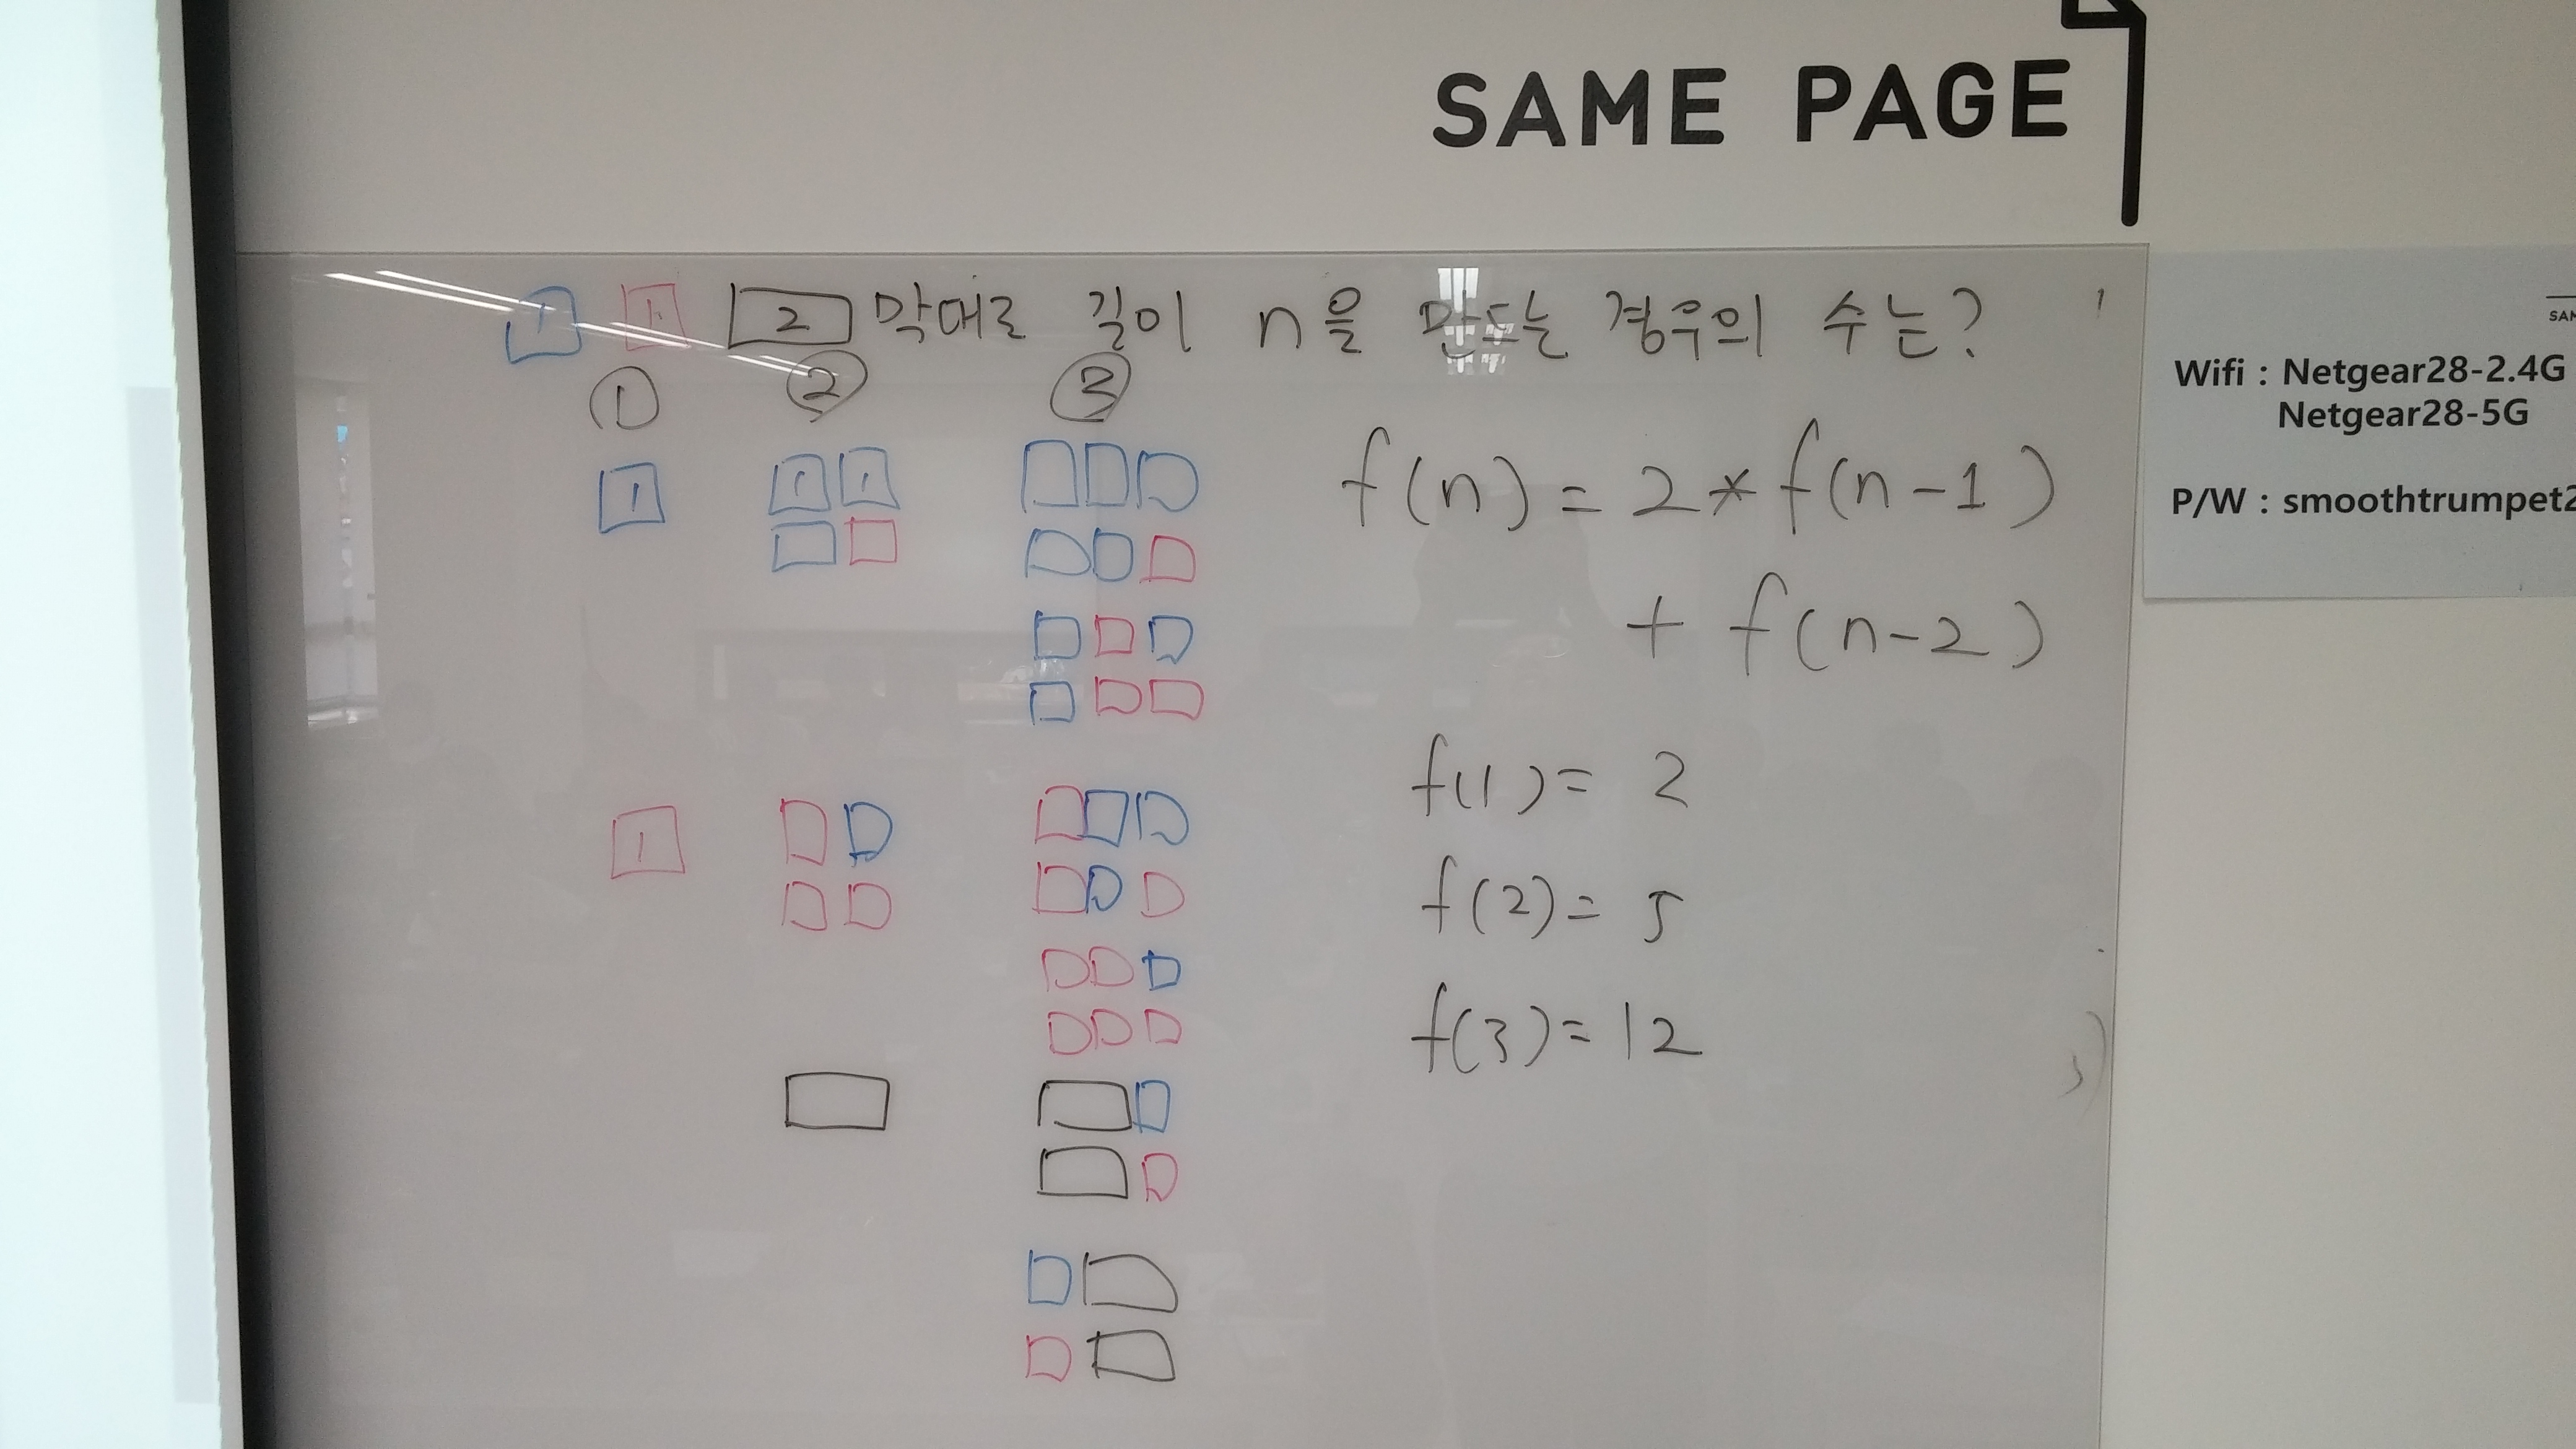 SAME PAGE
1 1 2 막대로 길이 n을 만드는 경우의 수는?
① ② ③
1 1 1
f(n) = 2 * f(n-1)
+ f(n-2)
1
f(1) = 2
f(2) = 5
f(3) = 12
Wifi : Netgear28-2.4G
Netgear28-5G
P/W : smoothtrumpet2